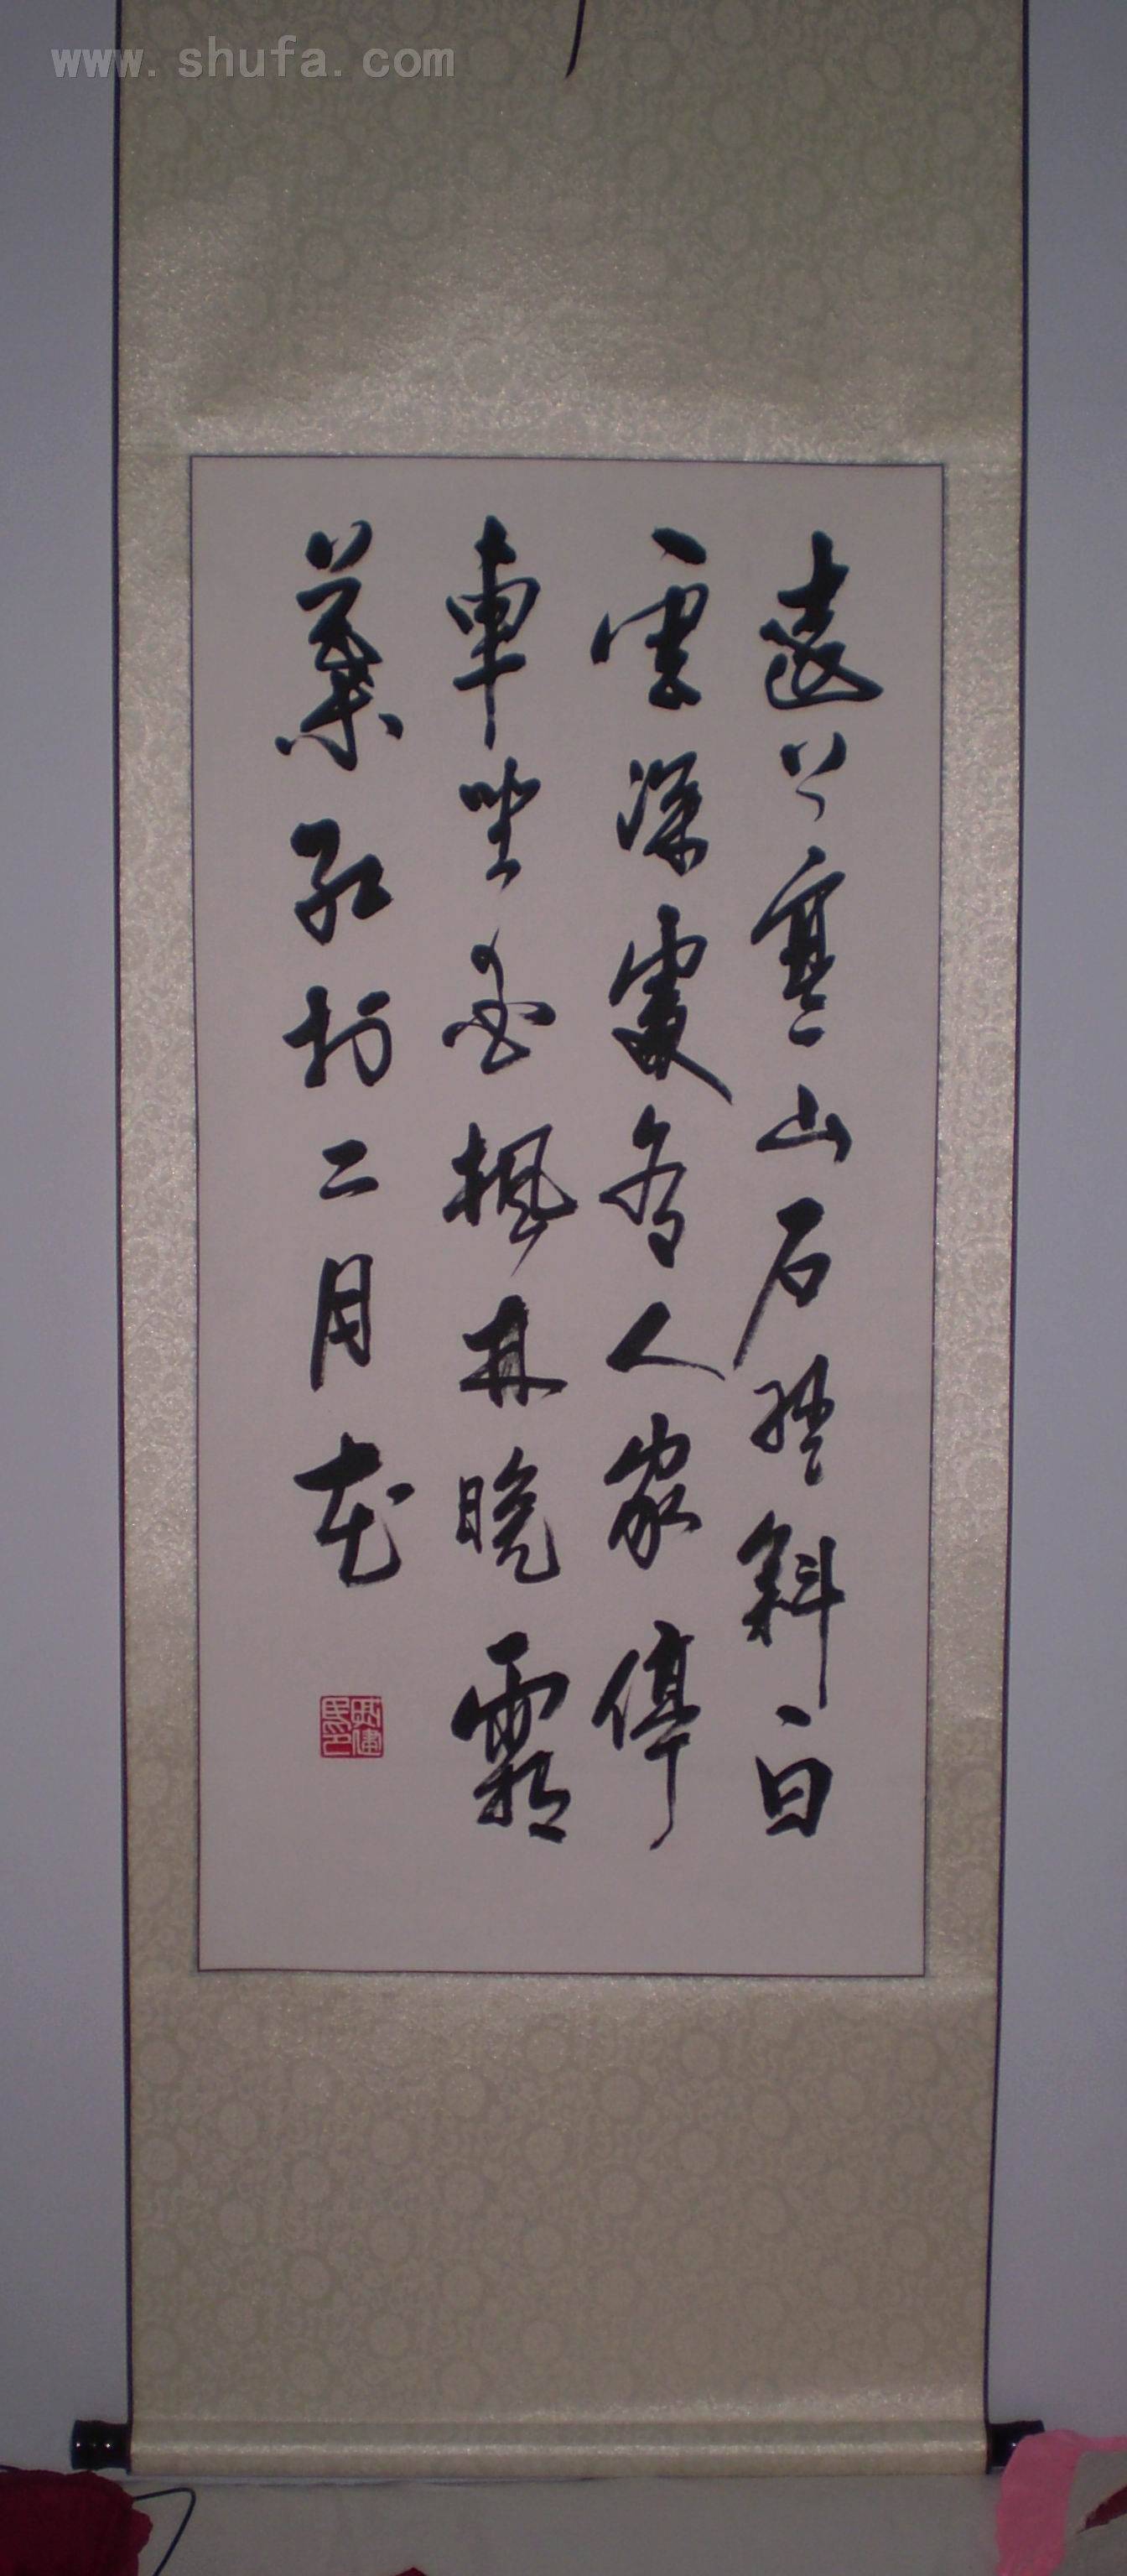 www.shufa.com
遠上寒山石徑斜白
雲深處有人家停
車坐愛楓林晚霜
葉紅於二月花